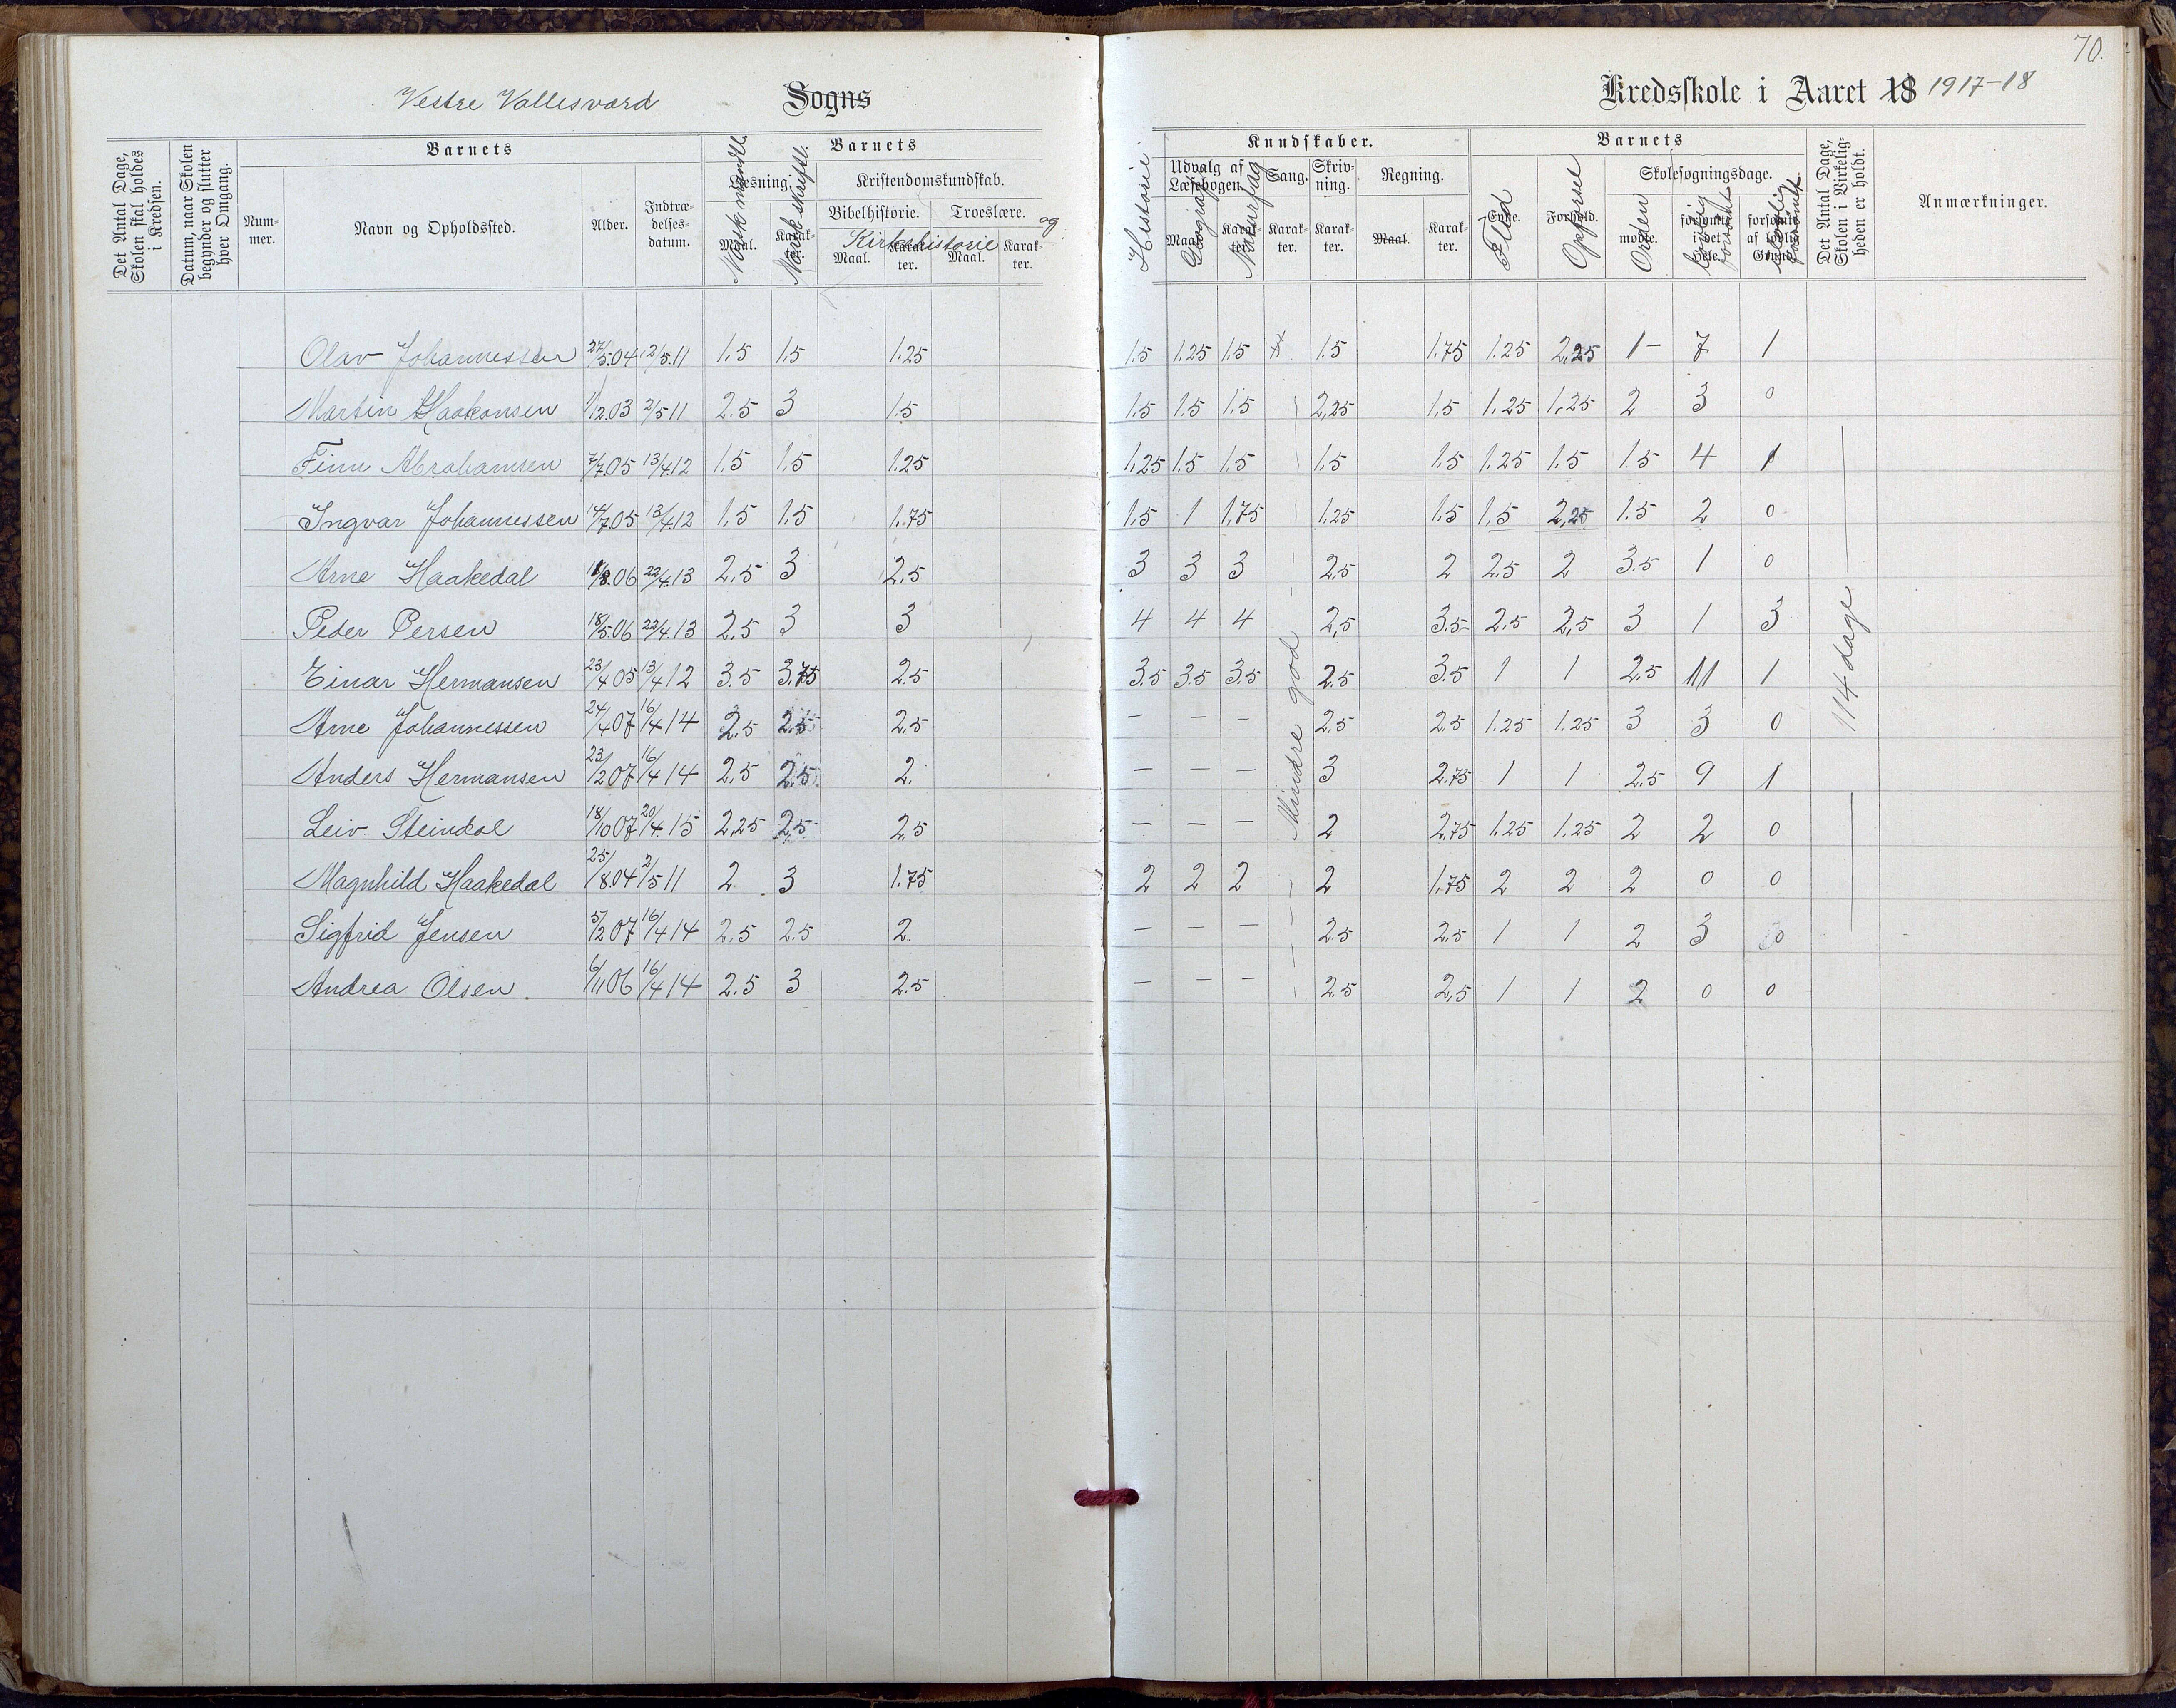 70.
Vestre Vallesværd Sogns Kredsskole i Aaret 18 1917-18
Det Antal Dage, Skolen skal holdes i Kredsen.
Datum, naar Skolen begynder og slutter hver Omgang.
Barnets
Nummer.
Navn og Opholdssted.
Alder.
Indtrædelsesdatum.
Barnets
Læsning. Kristendomskundskab.
Norsk mundtl. Norsk skriftl.
Bibelhistorie. Troeslære. og
Kirkehistorie
Maal. Karakter. Maal. Karakter. Maal. Karakter.
Kundskaber.
Historie
Udvalg af Læsebogen. Sang. Skrivning. Regning.
Geografi Naturfag
Maal. Karakter. Karakter. Karakter. Maal. Karakter.
Barnets
Evne. Forhold. Skolesøgningsdage.
Flid Opførsel Orden
mødte. forsømte i det Hele. forsømte af lovlig Grund.
Det Antal Dage, Skolen i Virkeligheden er holdt.
Anmærkninger.
Olav Johannessen 27/5.04 2/5.11 1.5 1.5 1.25 1.5 1.25 1.5 1.5 1.75 1.25 2,25 1- 7 1
Martin Haakonsen 1/12.03 2/5 11 2.5 3 1.5 1.5 1.5 1.5 2,25 1,5 1.25 1,25 2 3 0
Finn Abrahamsen 7/7.05 13/4.12 1.5 1.5 1.25 1,25 1.5 1.5 1.5 1.5 1.25 1.5 1.5 4 1
Ingvar Johannessen 14/7.05 13/4.12 1,5 1.5 1.75 1.5 1 1,75 1.25 1.5 1,5 2,25 1.5 2 0
Arne Haakedal 11/8.06 22/4.13 2.5 3 2.5 3 3 3 2.5 2 2.5 2 3.5 1 0
Peder Persen 18/5.06 22/4.13 2.5 3 3 4 4 4 2,5 3.5 2.5 2,5 3 1 3
Einar Hermansen 23/4 05 13/4 12 3.5 3.75 2.5 3.5 3.5 3.5 2.5 3.5 1 1 2.5 11 1
Arne Johannessen 24/4 07 16/4 14 2.5 2.5 2.5 - - - 2.5 2.5 1.25 1.25 3 3 0
Anders Hermansen 23/2 07 16/4 14 2.5 2.5 2. - - - 3 2.75 1 1 2.5 9 1
Leiv Steindal 18/10 07 20/4 15 2,25 2,5 2.5 - - - 2 2,75 1.25 1.25 2 2 0
Magnhild Haakedal 25/8.04 2/5 11 2 3 1.75 2 2 2 2 1.75 2 2 2 0 0
Sigfrid Jensen 5/2 07 16/4 14 2.5 2.5 2. - - - 2.5 2.5 1 1 2 3 0
Andrea Olsen. 6/11 06 16/4 14 2.5 3 2.5 - - - 2.5 2,5 1 1 2 0 0
Mindre god
114 dage